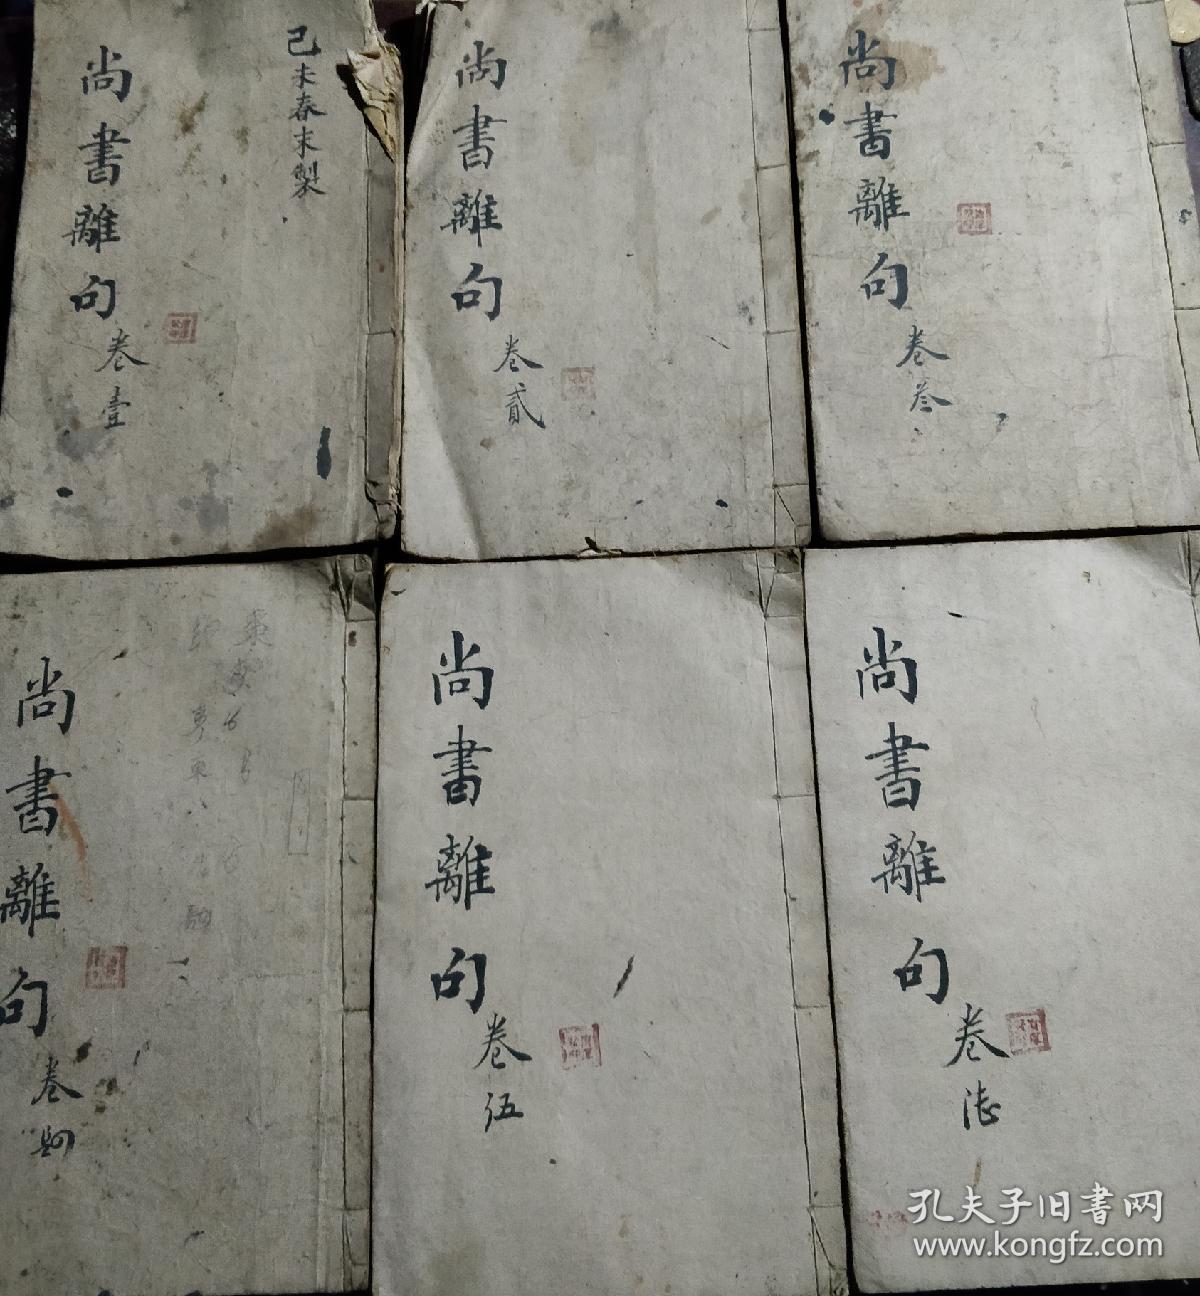 己未春末製
尚書離句
卷壹
尚書離句
卷貳
尚書離句
卷叁
尚書離句
卷
尚書離句
卷伍
尚書離句
卷
孔夫子旧书网
www.kongfz.com